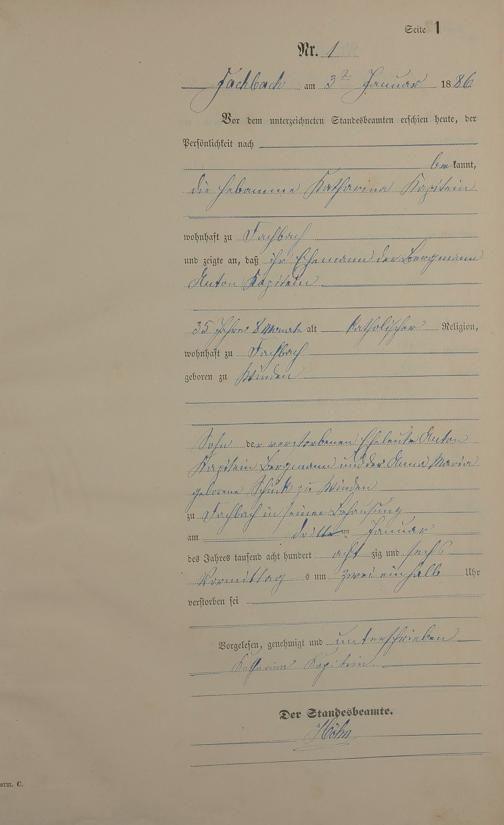 Seite 1
Nr. 1
Fachbach am 3ten Januar 1886
Vor dem unterzeichneten Standesbeamten erschien heute, der
Persönlichkeit nach
bekannt,
die Hebamme Katharina Kapitein
wohnhaft zu Fachbach
und zeigte an, daß ihr Ehemann der Bergmann
Anton Kapitein
35 Jahre 8 Monate alt Katholischer Religion,
wohnhaft zu Fachbach
geboren zu Winden
Sohn der verstorbenen Eheleute Anton
Kapitein Bergmann und der Anna Maria
geborene zu Winden
zu Fachbach in seiner Behausung
am dritten Januar
des Jahres tausend acht hundert achtzig und sechs
Vormittags um zwei einhalb Uhr
verstorben sei
Vorgelesen, genehmigt und unterschrieben
Katharina Kapitein
Der Standesbeamte.
Höhn
C.